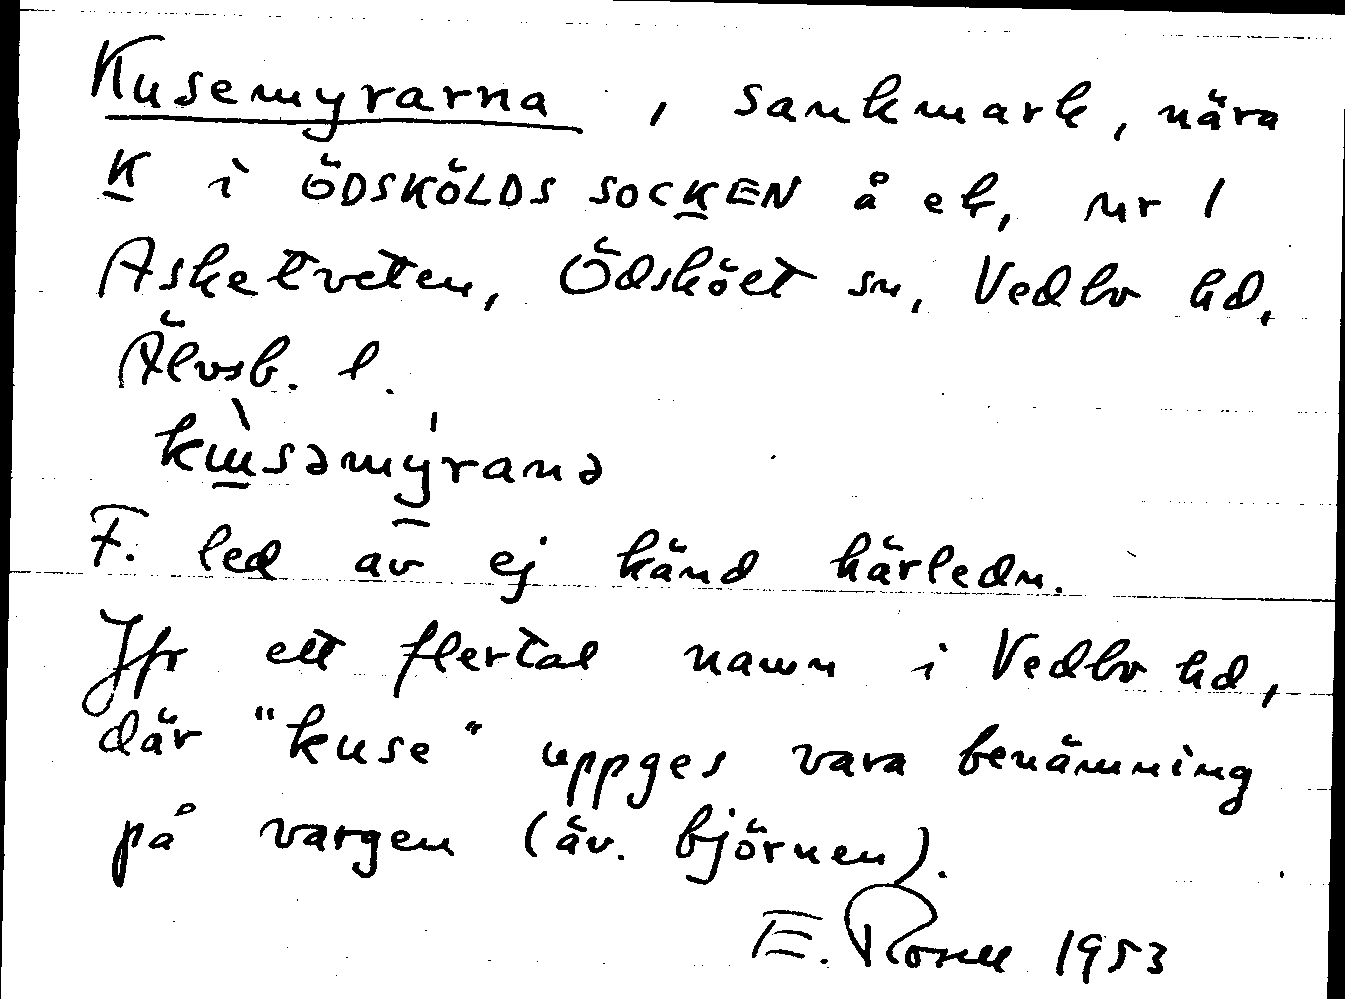 Kusemyrarna, sankmark, nära
K i ÖDSKÖLDS SOCKEN å ek, nr 1
Asketveten, Ödsköet sn, Vedbo hd,
Älvsb. l.
kɯ̀səmy̍ranə
F. led av ej känd härledn.
Jfr ett flertal namn i Vedbo hd,
där "kuse" uppges vara benämning
på vargen (äv. björnen).
E. Rosell 1953